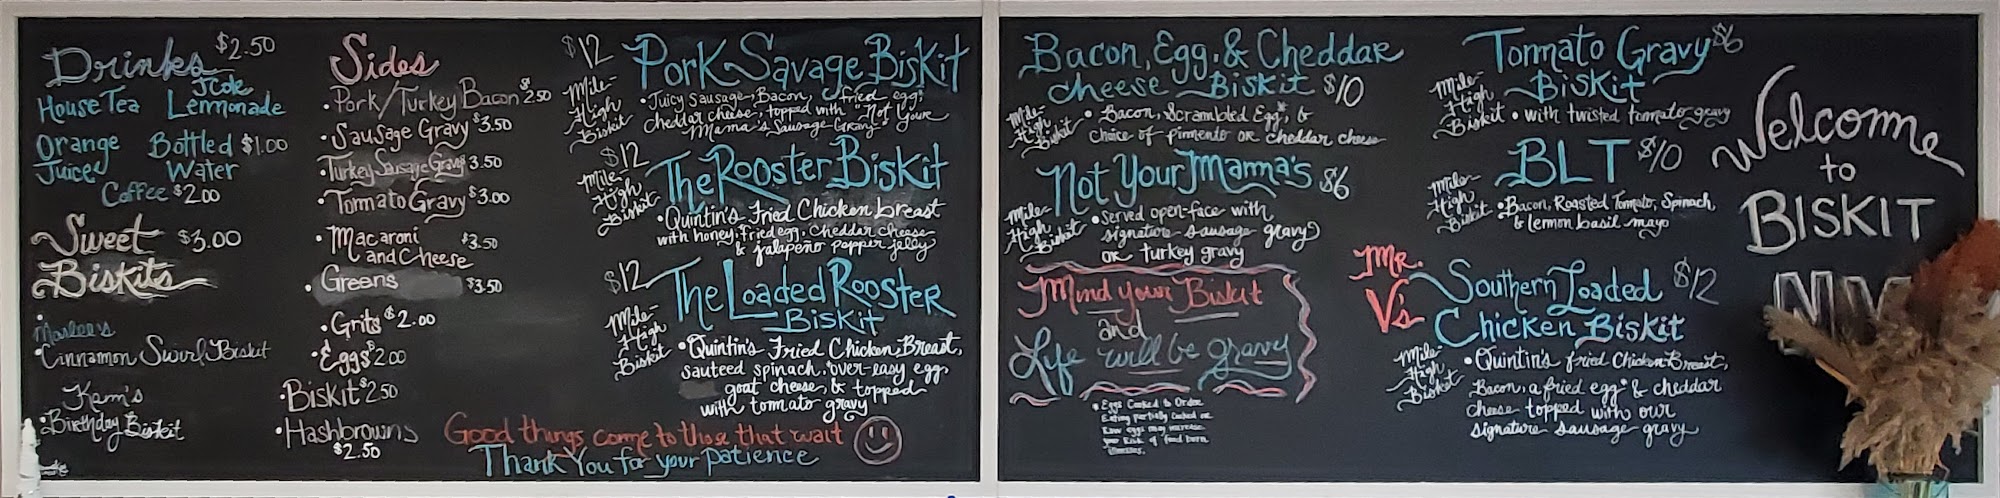 Drinks $2.50
House Tea Lemonade
Orange Bottled $1.00
Juice Water
Coffee $2.00
Sweet $3.00
Biskits
Marlee's
• Cinnamon Swirl Biskit
Kam's
• Birthday Biskit
Sides
• Pork/Turkey Bacon $2.50
• Sausage Gravy $3.50
Turkey Sausage Gravy $3.50
• Tomato Gravy $3.00
• Macaroni
and Cheese $3.50
• Greens $3.50
• Grits $2.00
• Eggs $2.00
• Biskit $2.50
• Hashbrowns
$2.50
$12 Pork Savage Biskit
Mile-
High
Biskit
• Juicy Sausage, Bacon, a fried egg,
cheddar cheese, topped with "Not Your
Mama's Sausage Gravy"
$12 The Rooster Biskit
Mile-
High
Biskit
• Quintin's Fried Chicken breast
with honey, fried egg, cheddar cheese
& jalapeño pepper jelly
$12 The Loaded Rooster
Biskit
Mile-
High
Biskit
• Quintin's Fried Chicken, Breast,
sauteed spinach, over-easy egg,
goat cheese, & topped
with tomato gravy
Good things come to those that wait
Thank You for your patience
Bacon, Egg, & Cheddar
Cheese Biskit $10
Mile-
High
Biskit
• Bacon, Scrambled Egg*, &
choice of pimento or cheddar cheese
Not Your Mamma's $6
Mile-
High
Biskit
• served open-face with
signature sausage gravy
or turkey gravy
Mind your Biskit
and
Life will be gravy
* Eggs Cooked to Order
Eating partially cooked or
Raw eggs may increase
your Risk of food born
illnesses.
Tomato Gravy $6
Biskit
Mile-
High
Biskit
• with twisted tomato gravy
BLT $10
Mile-
High
Biskit
• Bacon, Roasted Tomato, Spinach,
& lemon basil mayo
Mr.
V's
Southern Loaded $12
Chicken Biskit
Mile-
High
Biskit
• Quintin's fried Chicken Breast,
Bacon, a fried egg* & cheddar
cheese topped with our
signature sausage gravy
Welcome
to
BISKIT